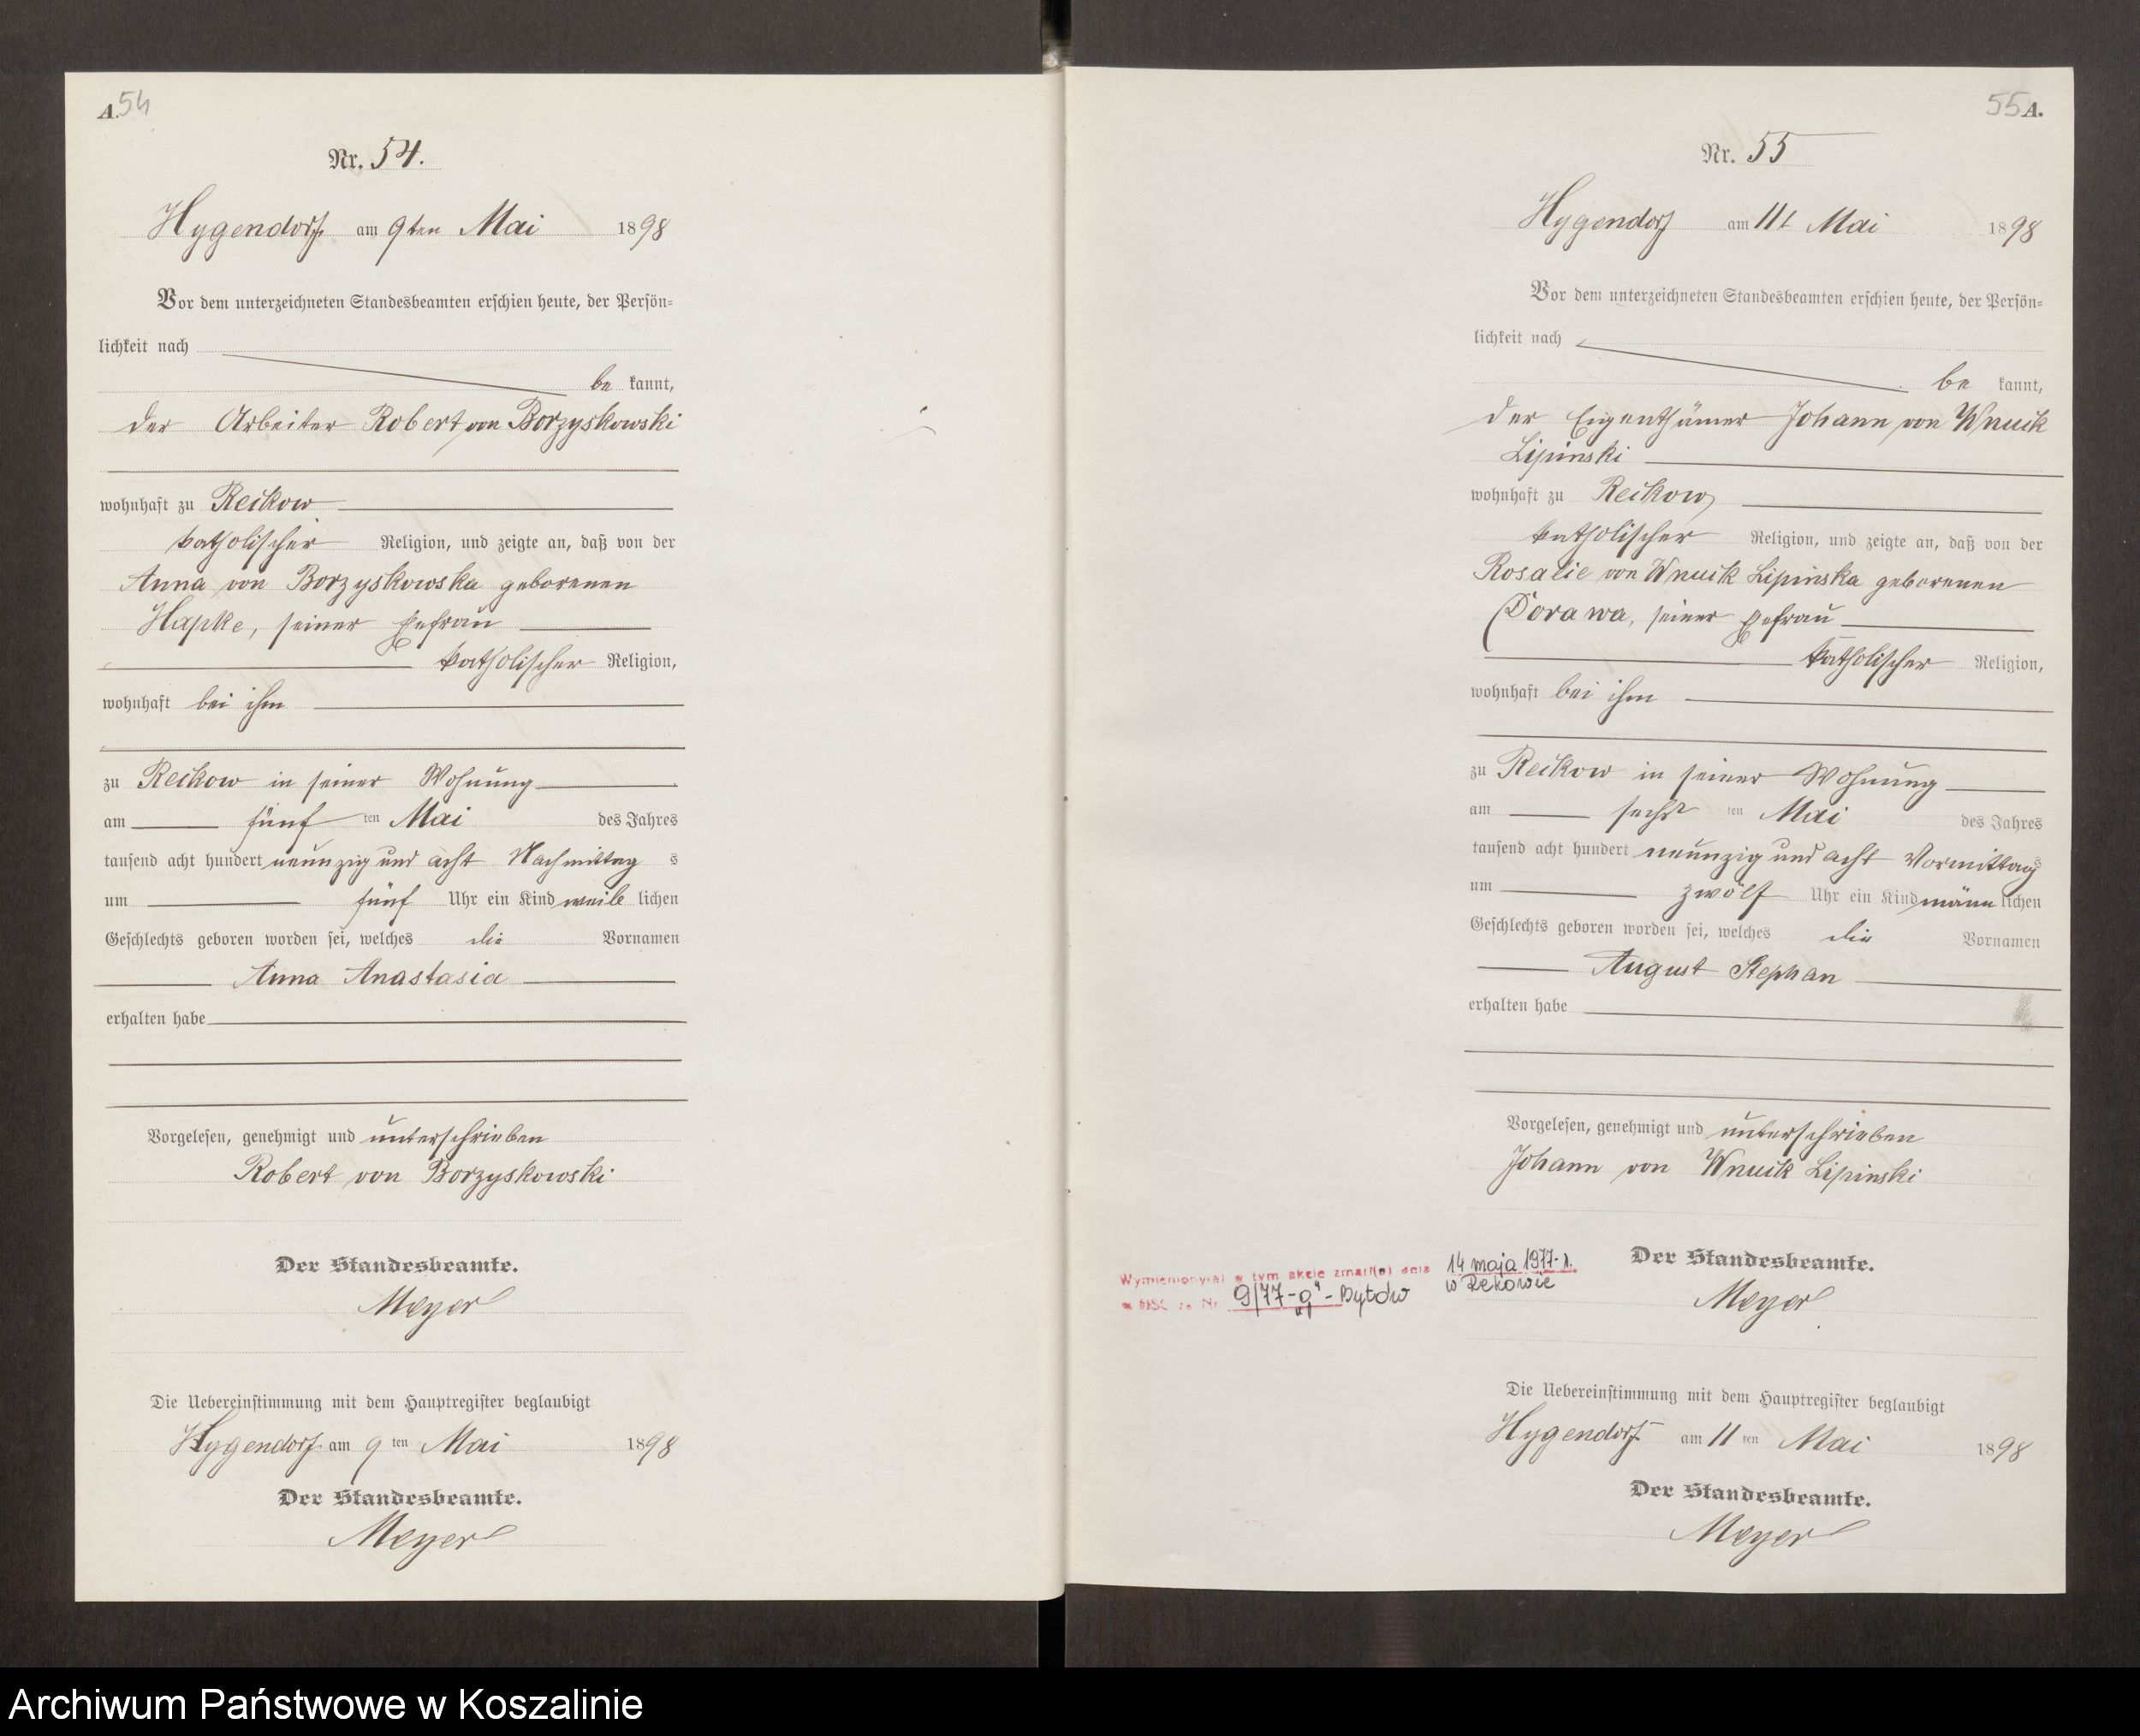 A. 54
Nr. 54.
Hygendorf am 9ten Mai 1898
Vor dem unterzeichneten Standesbeamten erschien heute, der Persön-
lichkeit nach
be kannt,
der Arbeiter Robert von Borzyskowski
wohnhaft zu Reckow
katholischer Religion, und zeigte an, daß von der
Anna von Borzyskowska geborenen
Hapke, seiner Ehefrau
katholischer Religion,
wohnhaft bei ihm
zu Reckow in seiner Wohnung
am fünf ten Mai des Jahres
tausend acht hundert neunzig und acht Nachmittag s
um fünf Uhr ein Kind weib lichen
Geschlechts geboren worden sei, welches die Vornamen
Anna Anastasia
erhalten habe
Vorgelesen, genehmigt und unterschrieben
Robert von Borzyskowski
Der Standesbeamte.
Meyer
Die Uebereinstimmung mit dem Hauptregister beglaubigt
Hygendorf am 9 ten Mai 1898
Der Standesbeamte.
Meyer
55 A.
Nr. 55
Hygendorf am 11t Mai 1898
Vor dem unterzeichneten Standesbeamten erschien heute, der Persön-
lichkeit nach
be kannt,
der Eigenthümer Johann von Wnuck
Lipinski
wohnhaft zu Reckow
katholischer Religion, und zeigte an, daß von der
Rosalie von Wnuck Lipinska geborenen
Dorawa, seiner Ehefrau
katholischer Religion,
wohnhaft bei ihm
zu Reckow in seiner Wohnung
am sechs ten Mai des Jahres
tausend acht hundert neunzig und acht Vormittag s
um zwölf Uhr ein Kind männ lichen
Geschlechts geboren worden sei, welches die Vornamen
August Stephan
erhalten habe
Vorgelesen, genehmigt und unterschrieben
Johann von Wnuck Lipinski
Der Standesbeamte.
Meyer
Wymieniony(a) w tym akcie zmarł(a) dnia 14 maja 1977 r.
w USC za Nr 9/77 - Bytów w Rekowie
Die Uebereinstimmung mit dem Hauptregister beglaubigt
Hygendorf am 11 ten Mai 1898
Der Standesbeamte.
Meyer
Archiwum Państwowe w Koszalinie